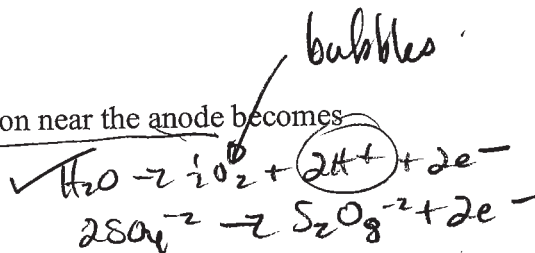 bubbles
on near the anode becomes
✓ H₂O → ½O₂ + 2H⁺ + 2e⁻
2SO₄⁻² → S₂O₈⁻² + 2e⁻